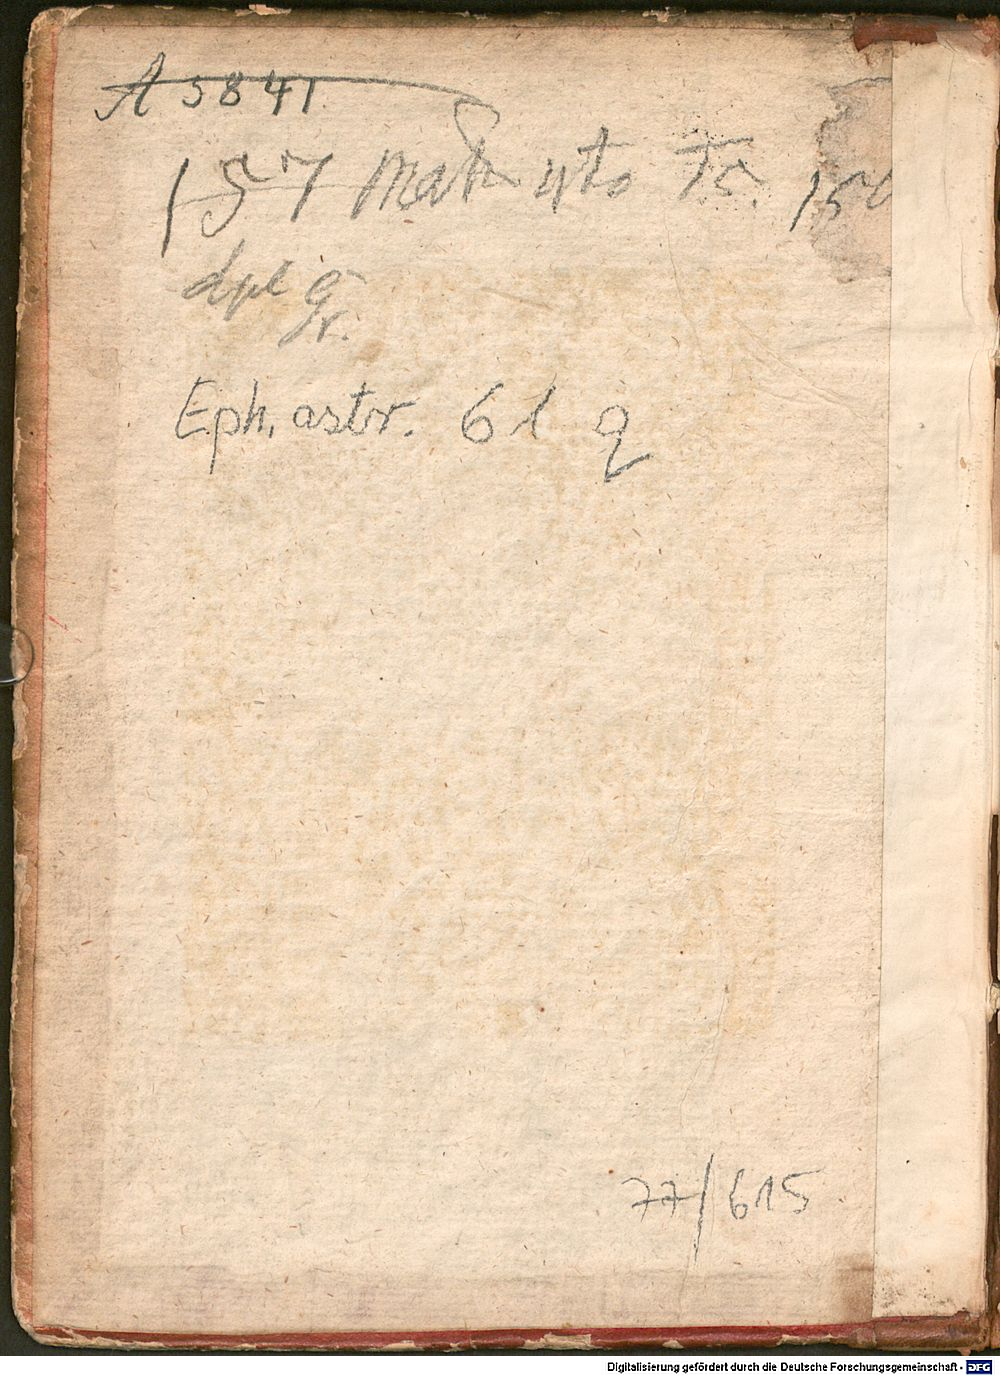 A 5841
157 Math 4to
dpl Gr.
Eph. astr. 61 q
77/615
Digitalisierung gefördert durch die Deutsche Forschungsgemeinschaft - DFG